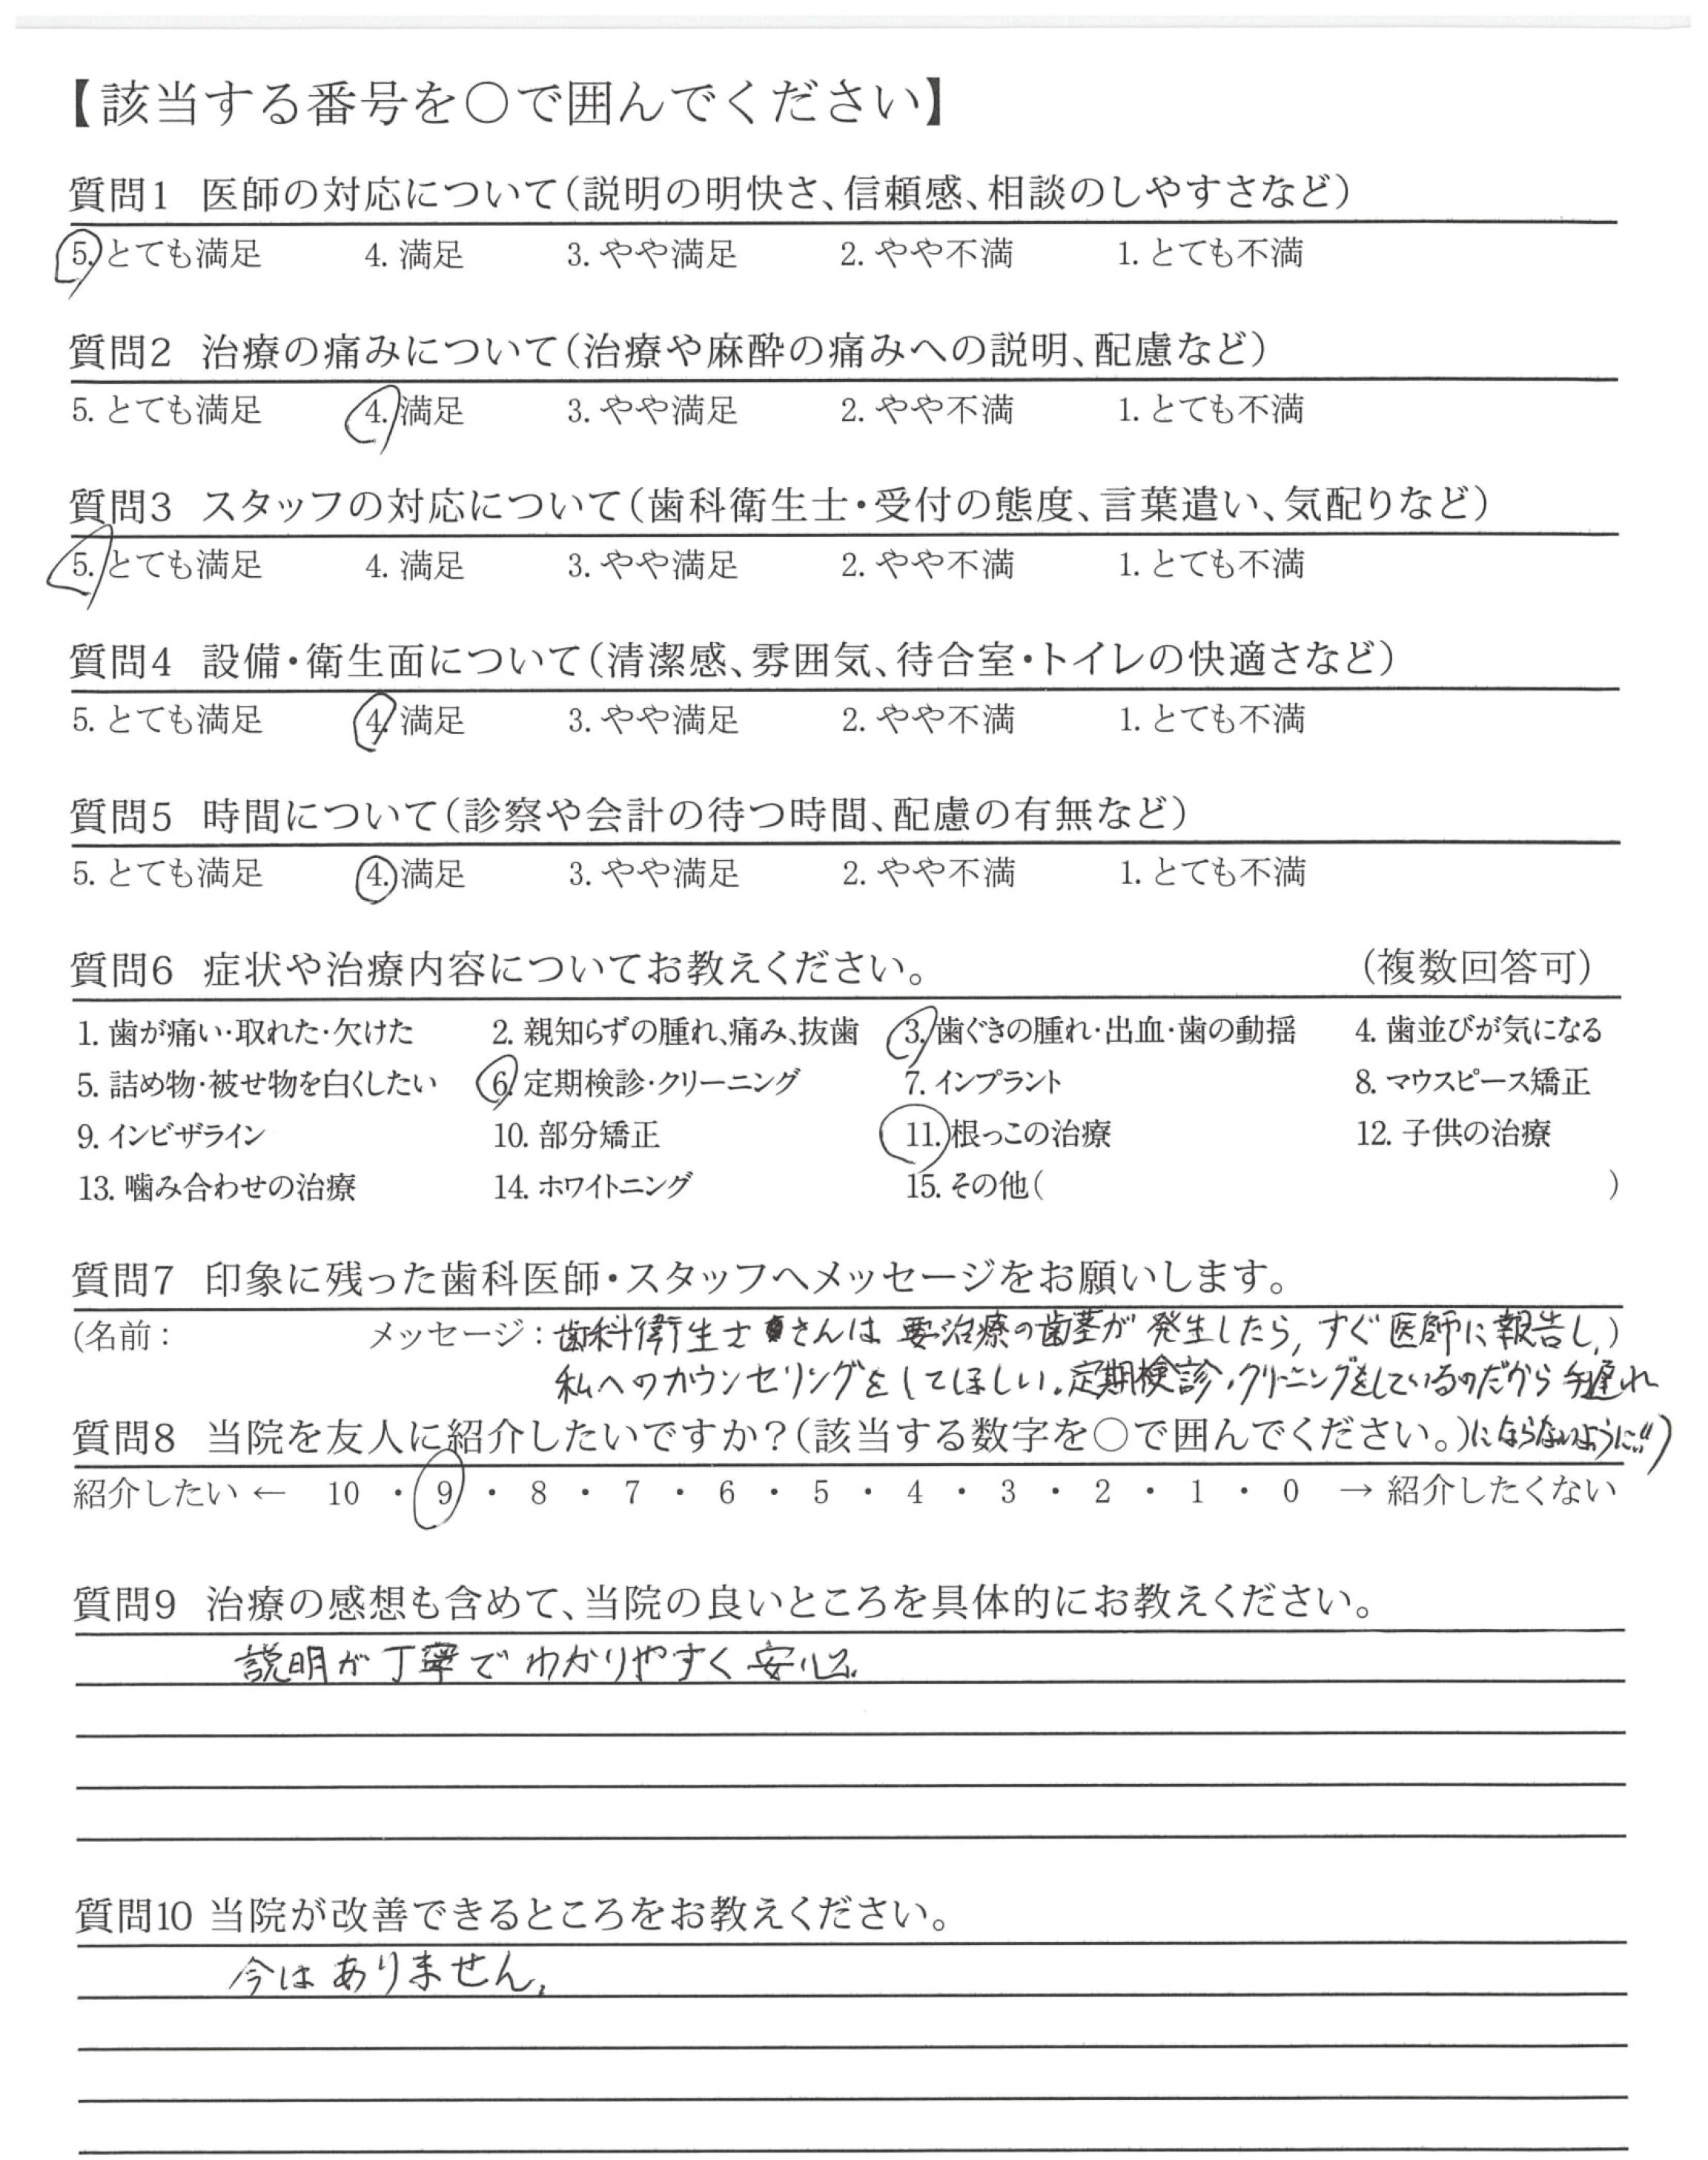 【該当する番号を○で囲んでください】
質問1 医師の対応について(説明の明快さ、信頼感、相談のしやすさなど)
5. とても満足 4. 満足 3. やや満足 2. やや不満 1. とても不満
質問2 治療の痛みについて(治療や麻酔の痛みへの説明、配慮など)
5. とても満足 4. 満足 3. やや満足 2. やや不満 1. とても不満
質問3 スタッフの対応について(歯科衛生士・受付の態度、言葉遣い、気配りなど)
5. とても満足 4. 満足 3. やや満足 2. やや不満 1. とても不満
質問4 設備・衛生面について(清潔感、雰囲気、待合室・トイレの快適さなど)
5. とても満足 4. 満足 3. やや満足 2. やや不満 1. とても不満
質問5 時間について(診察や会計の待つ時間、配慮の有無など)
5. とても満足 4. 満足 3. やや満足 2. やや不満 1. とても不満
質問6 症状や治療内容についてお教えください。 (複数回答可)
1. 歯が痛い・取れた・欠けた 2. 親知らずの腫れ、痛み、抜歯 3. 歯ぐきの腫れ・出血・歯の動揺 4. 歯並びが気になる
5. 詰め物・被せ物を白くしたい 6. 定期検診・クリーニング 7. インプラント 8. マウスピース矯正
9. インビザライン 10. 部分矯正 11. 根っこの治療 12. 子供の治療
13. 噛み合わせの治療 14. ホワイトニング 15. その他( )
質問7 印象に残った歯科医師・スタッフへメッセージをお願いします。
(名前: メッセージ: 歯科衛生士さんは 要治療の歯茎が 発生したら, すぐ医師に報告し,)
私へのカウンセリングをしてほしい。定期検診・クリーニングをしているのだから 手遅れ
質問8 当院を友人に紹介したいですか?(該当する数字を○で囲んでください。)にならないように!!)
紹介したい ← 10 ・ 9 ・ 8 ・ 7 ・ 6 ・ 5 ・ 4 ・ 3 ・ 2 ・ 1 ・ 0 → 紹介したくない
質問9 治療の感想も含めて、当院の良いところを具体的にお教えください。
説明が丁寧で わかりやすく 安心。
質問10 当院が改善できるところをお教えください。
今はありません。